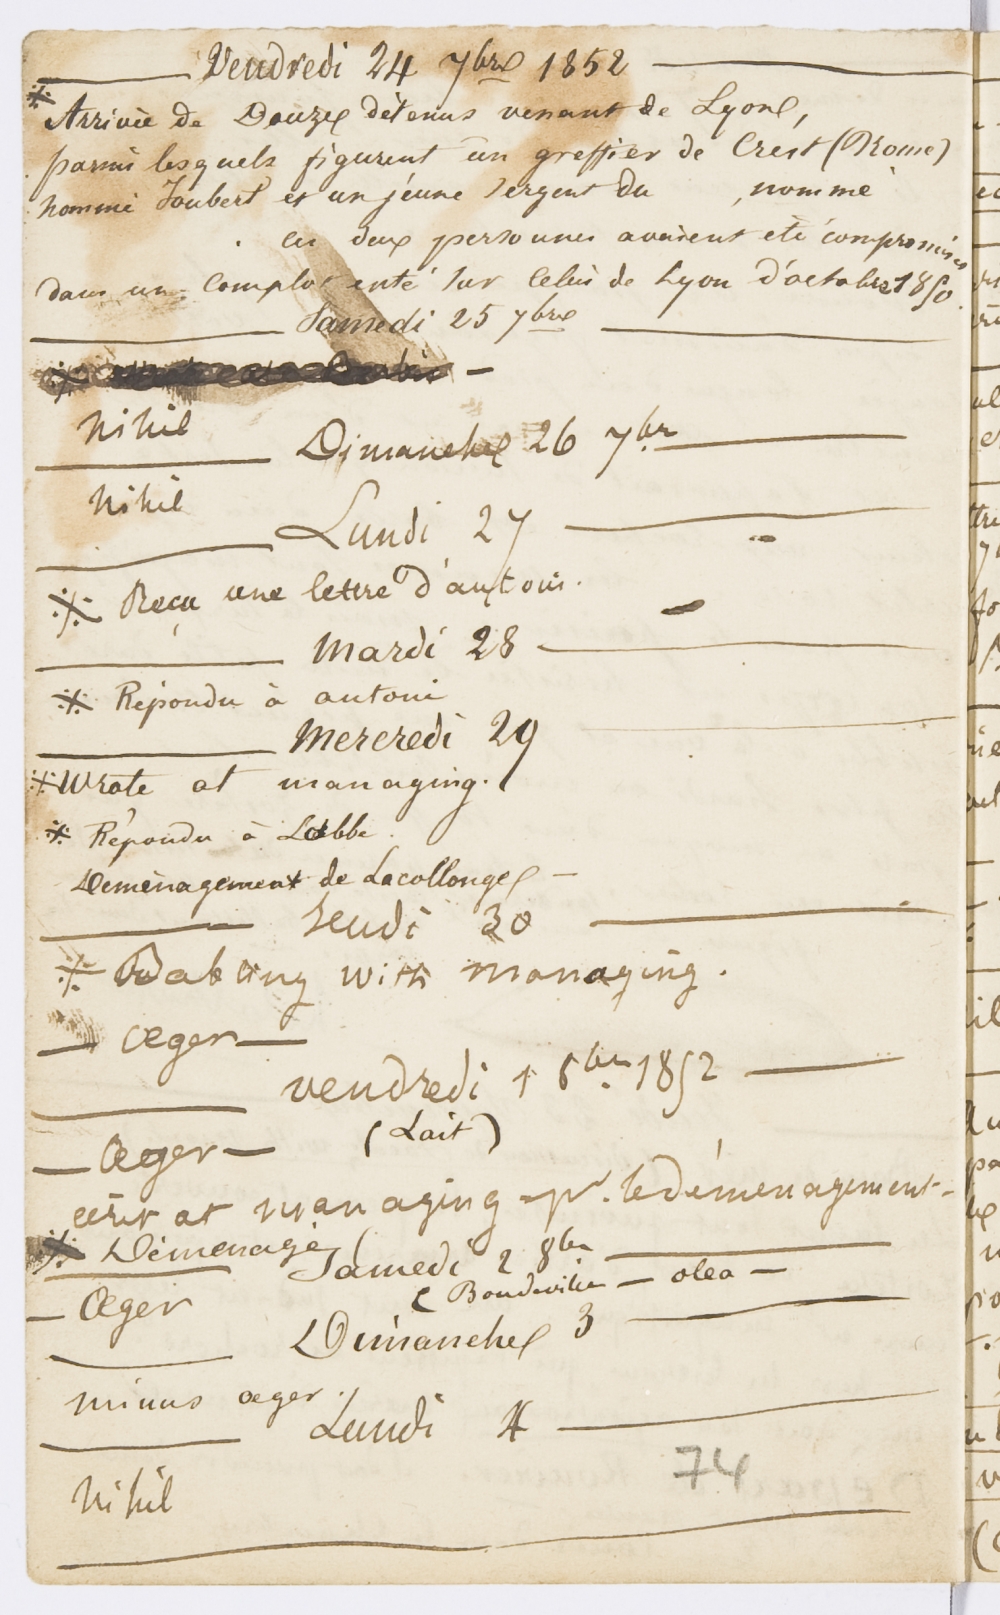 Vendredi 24 7bre 1852
Arrivée de Douze détenus venant de Lyon,
parmi lesquels figurent un greffier de Crest (Rome)
nommé Joubert et un jeune sergent du , nommé
. ces deux personnes avaient été compromises
dans un complot enté sur celui de Lyon d'octobre 1850.
Samedi 25 7bre
Nihil
Dimanche 26 7br
Nihil
Lundi 27
Reçu une lettre d'antoni.
Mardi 28
Répondu à antoni
Mercredi 29
Wrote at managing.
Répondu à Labbe.
Déménagement de Lacollonge —
Jeudi 30
with managing.
— Œger —
vendredi 1 8bre 1852
— Œger — (Lait)
at managing pr. le déménagement —
Déménagé
Samedi 2 8bre
— Œger
— olea —
Dimanche 3
minus æger.
Lundi 4
74
Nihil